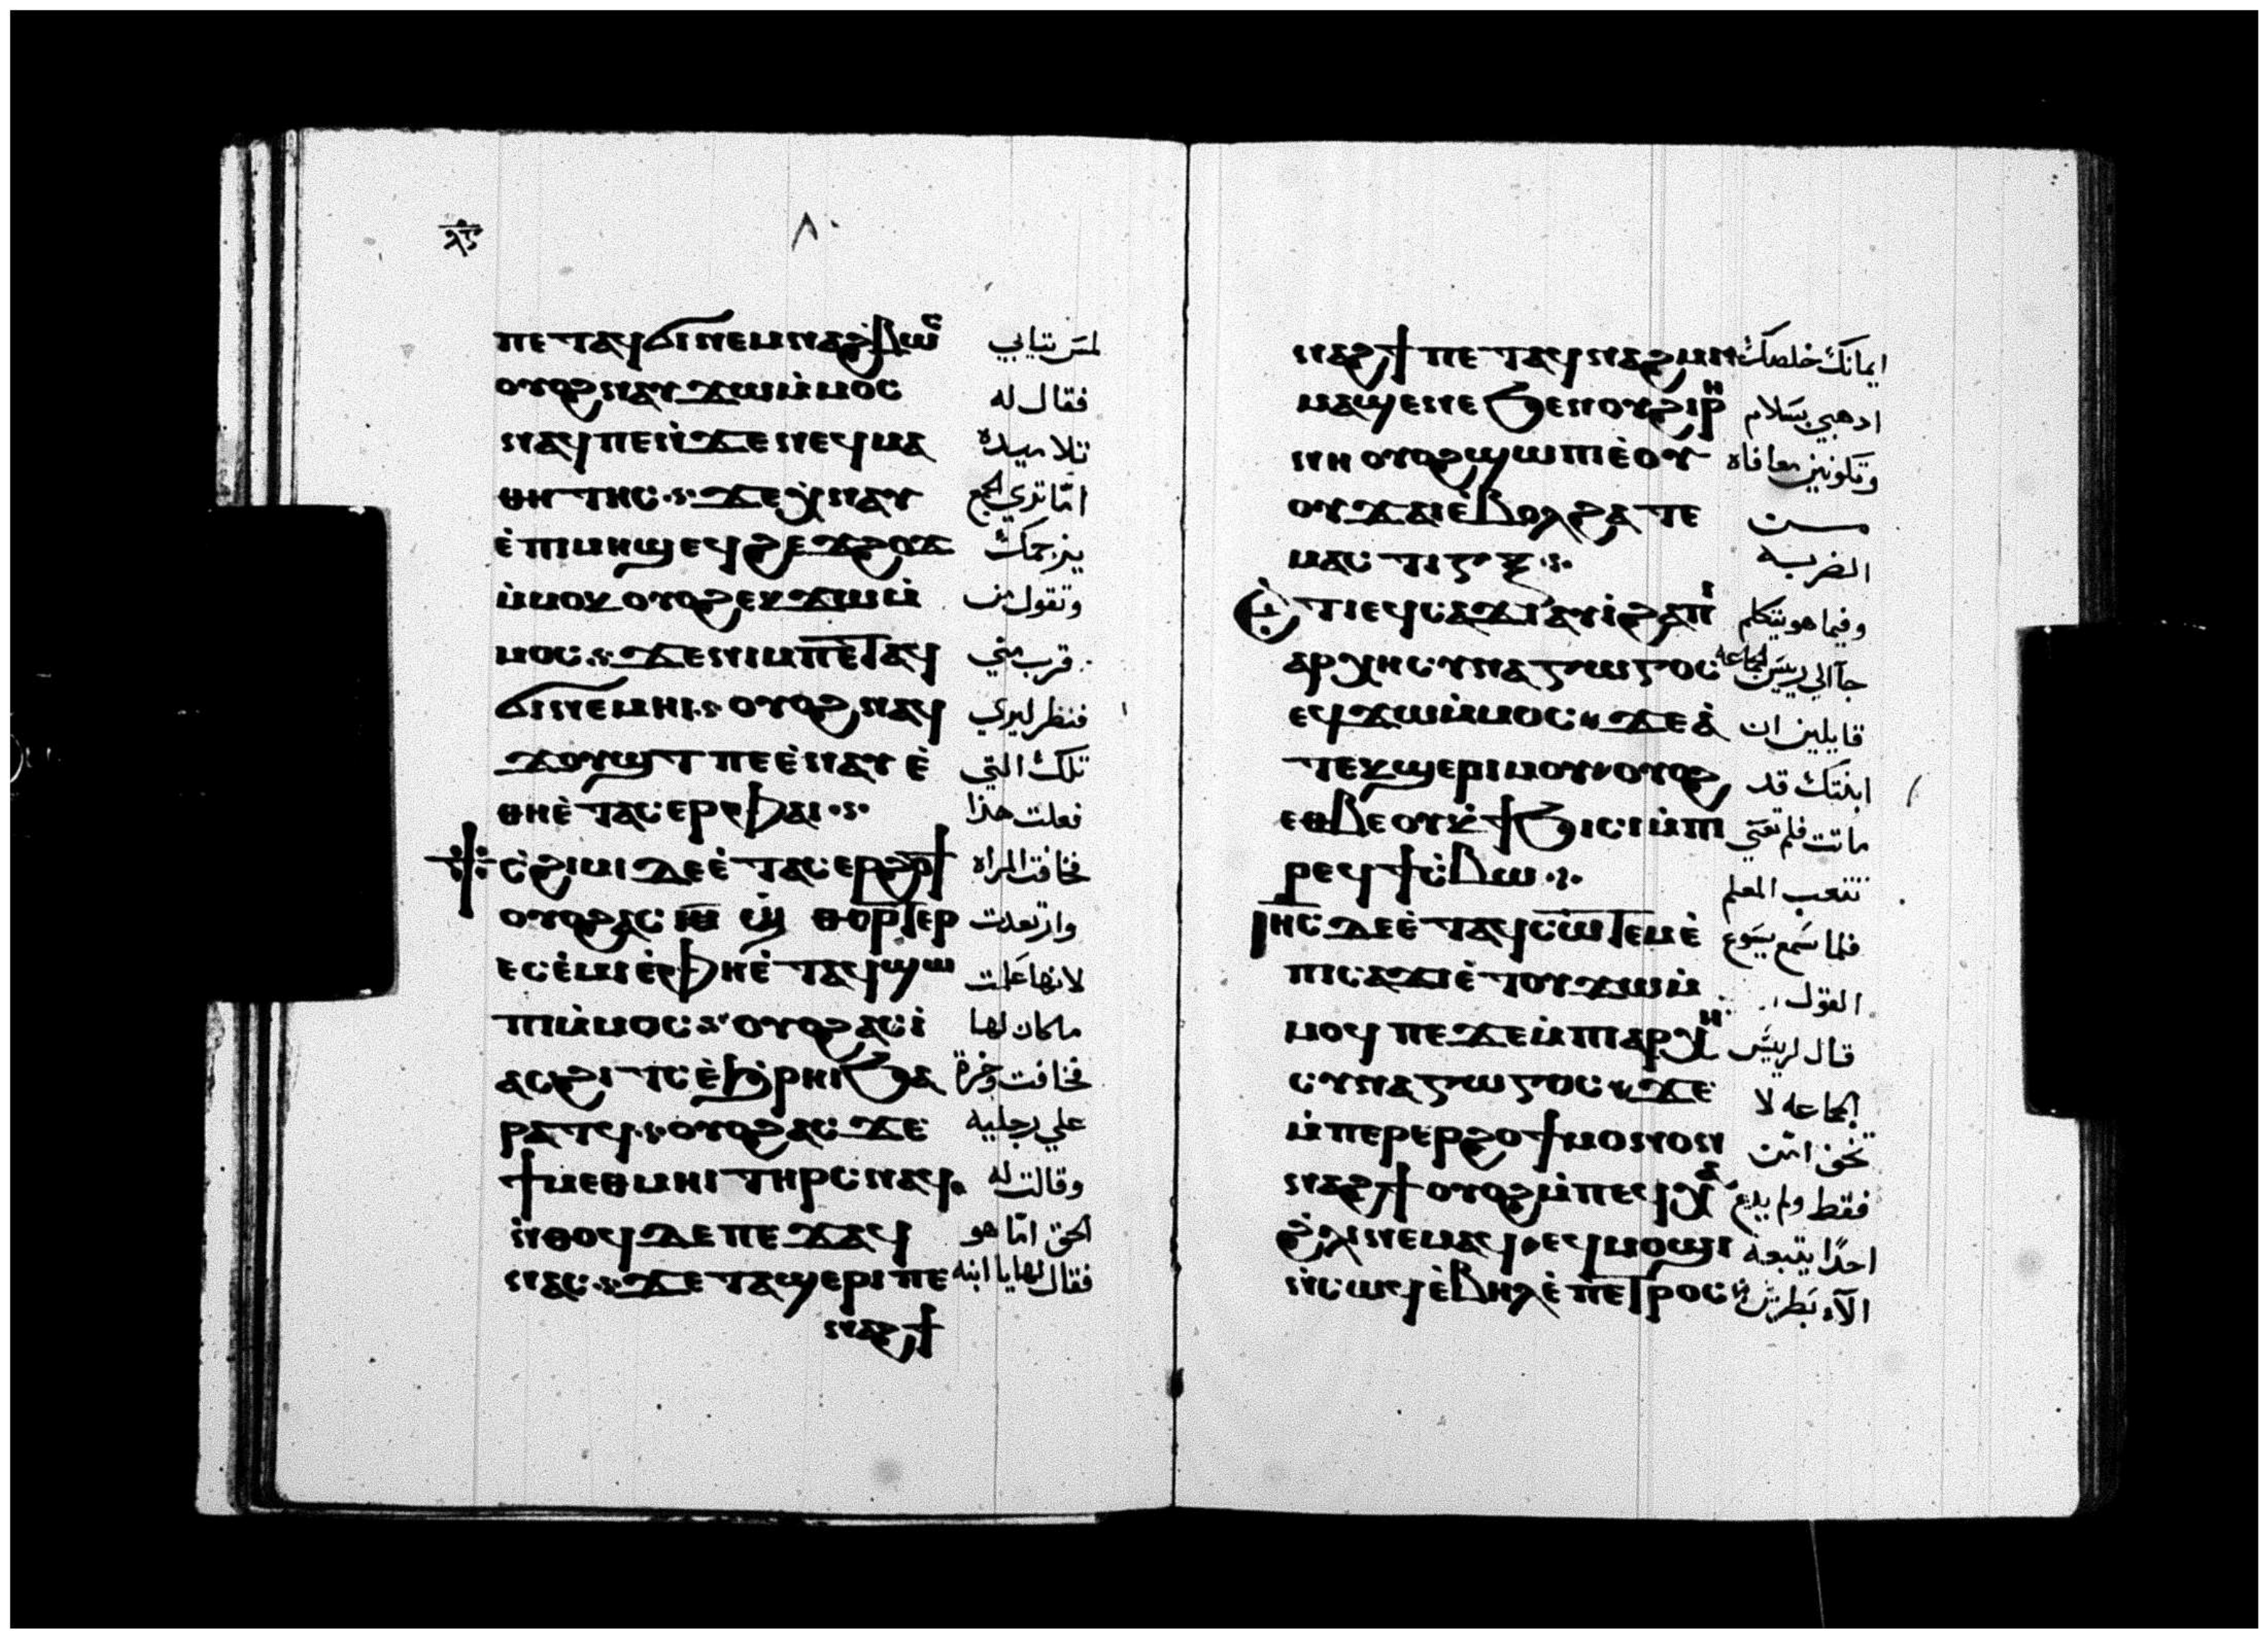 ⲗ̅ⲋ̅ ٨٠
ⲡⲉⲧⲁϥϭⲓⲛⲉⲙⲛⲁϩⲃⲱⲥ لمس ثيابي
ⲟⲩⲟϩⲛⲁⲩϫⲱⲙ̀ⲙⲟⲥ فقال له
ⲛⲁϥⲡⲉⲛ̀ϫⲉⲛⲉϥⲙⲁ تلاميده
ⲑⲏⲧⲏⲥ·ⲋ·ϫⲉⲭⲛⲁⲩ امّا تري الجمع
ⲉ̀ⲡⲓⲙⲏϣⲉϥϩⲉϫϩⲱϫ يزحمك
ⲙ̀ⲙⲟⲕⲟⲩⲟϩⲉⲕϫⲱⲙ̀ وتقول من
ⲙⲟⲥ·ⲋ·ϫⲉⲛⲓⲙⲡⲉⲧⲁϥ قرب مني
ϭⲓⲛⲉⲙⲏⲓ·ⲋ ⲟⲩⲟϩⲛⲁϥ فنظر ليري
ϫⲟⲩϣⲧⲡⲉⲉ̀ⲛⲁⲩⲉ̀ تلك التي
ⲑⲏⲉ̀ⲧⲁⲥⲉⲣⲫⲁⲓ·ⲋ· فعلت هذا
ⲥ̀ϩⲓⲙⲓⲇⲉⲉ̀ⲧⲁⲥⲉⲣϩⲟϯ فخافت المراه
ⲟⲩⲟϩⲁⲥ ϣ̀ ⲑⲟⲣⲧⲉⲣ وارتعدت
ⲉⲥⲉ̀ⲙⲓⲉ̀ⲫⲏⲉ̀ⲧⲁϥϣⲱ لانها علمت
ⲡⲓⲙ̀ⲙⲟⲥ·ⲋ·ⲟⲩⲟϩⲁⲥⲓ̀ ماكان لها
ⲁⲥϩⲓⲧⲥⲉ̀ϧ̀ⲣⲏⲓϧⲁ فخافت وخرة
ⲣⲁⲧϥ·ⲋ·ⲟⲩⲟϩⲁⲥϫⲉ علي رجليه
ϯⲙⲉⲑⲙⲏⲓⲧⲏⲣⲥⲛⲁϥ· وقالت له
ⲛ̀ⲑⲟϥⲇⲉⲡⲉϫⲁϥ الحق امّا هو
ⲛⲁⲥ·ⲋ·ϫⲉⲧⲁϣⲉⲣⲓⲡⲉ فقال لها يا ابنه
ⲛⲁϩϯ
ⲛⲁϩϯⲡⲉⲧⲁϥⲛⲁϩⲙⲓ ايمانك خلصك
ⲙⲁϣⲉⲛⲉϧⲉⲛⲟⲩϩⲓⲣⲏ ادهبي بسلام
ⲛⲏⲟⲩⲟϩϣⲱⲡⲓⲉ̀ⲟⲩ وتكونين معافاه
ⲟⲩϫⲁⲓⲉ̀ⲃⲟⲗϩⲁⲧⲉ من
ⲙⲁⲥⲧⲓⲅⲝ·ⲋ· الضربه
ⲉ̀ⲧⲓⲉϥⲥⲁϫⲓⲁⲩⲓ̀ϩⲁⲡⲓ وفيما هو يتكلم
ⲁⲣⲭⲏⲥⲩⲛⲁⲅⲱⲅⲟⲥ جاالي رييس الجماعه
ⲉϥϫⲱⲙ̀ⲙⲟⲥ·ϫⲉⲁ̀ قايلين ان
ⲧⲉⲕϣⲉⲣⲓⲙⲟⲩ·ⲟⲩⲟϩ ابنتك قد
ⲉⲑⲃⲉⲟⲩⲕ̀ϯϧⲓⲥⲓⲙ̀ⲡⲓ ماتت فلم تعني
ⲣⲉϥϯⲥ̀ⲃⲱ·ⲋ· تتعب المعلم
ⲓⲏⲥⲇⲉⲉ̀ⲧⲁϥⲥⲱⲧⲉⲙⲉ̀ فلما سمع يسوع
ⲡⲓⲥⲁϫⲓⲉ̀ⲧⲟⲩϫⲱⲙ̀ القول
ⲙⲟϥⲡⲉϫⲉⲙ̀ⲡⲓⲁⲣⲭⲏ قال لرييس
ⲥⲩⲛⲁⲅⲱⲅⲟⲥ·ϫⲉ الجماعه لا
ⲙ̀ⲡⲉⲣⲉⲣϩⲟϯⲙⲟⲛⲟⲛ تخف امن
ⲛⲁϩϯⲟⲩⲟϩⲙ̀ⲡⲉϥⲭⲁ فقط ولم يدع
ϩ̀ⲗⲓⲛⲉⲙⲁϥ·ⲉϥⲙⲟϣⲓ احدًا يتبعه
ⲛ̀ⲥⲱϥⲉ̀ⲃⲏⲗⲉ̀ⲡⲉⲧⲣⲟⲥ الّا بطرس